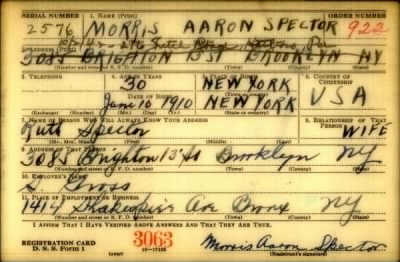 SERIAL NUMBER 1. NAME (Print) ORDER NUMBER
2576 MORRIS AARON SPECTOR 922
2. ADDRESS (Print)
3085 BRIGHTON 13 ST BROOKLYN NY
(Number and street or R. F. D. number) (Town) (County) (State)
3. TELEPHONE 4. AGE IN YEARS 5. PLACE OF BIRTH 6. COUNTRY OF CITIZENSHIP
30 NEW YORK
DATE OF BIRTH USA
June 10 1910 NEW YORK
(Exchange) (No.) (Mo.) (Day) (Yr.) (State or country)
7. NAME OF PERSON WHO WILL ALWAYS KNOW YOUR ADDRESS 8. RELATIONSHIP OF THAT PERSON
Ruth Spector WIFE
(Mr., Mrs., Miss) (First) (Middle) (Last)
9. ADDRESS OF THAT PERSON
3085 Brighton 13 St Brooklyn NY
(Number and street or R. F. D. number) (Town) (County) (State)
10. EMPLOYER'S NAME
S. Gross
11. PLACE OF EMPLOYMENT OR BUSINESS
1414 Shakespeire Ave Bronx NY
(Number and street or R. F. D. number) (Town) (County) (State)
I AFFIRM THAT I HAVE VERIFIED ABOVE ANSWERS AND THAT THEY ARE TRUE.
REGISTRATION CARD 3063 Morris Aaron Spector
D. S. S. Form 1 (over) 16—17105 (Registrant's signature)